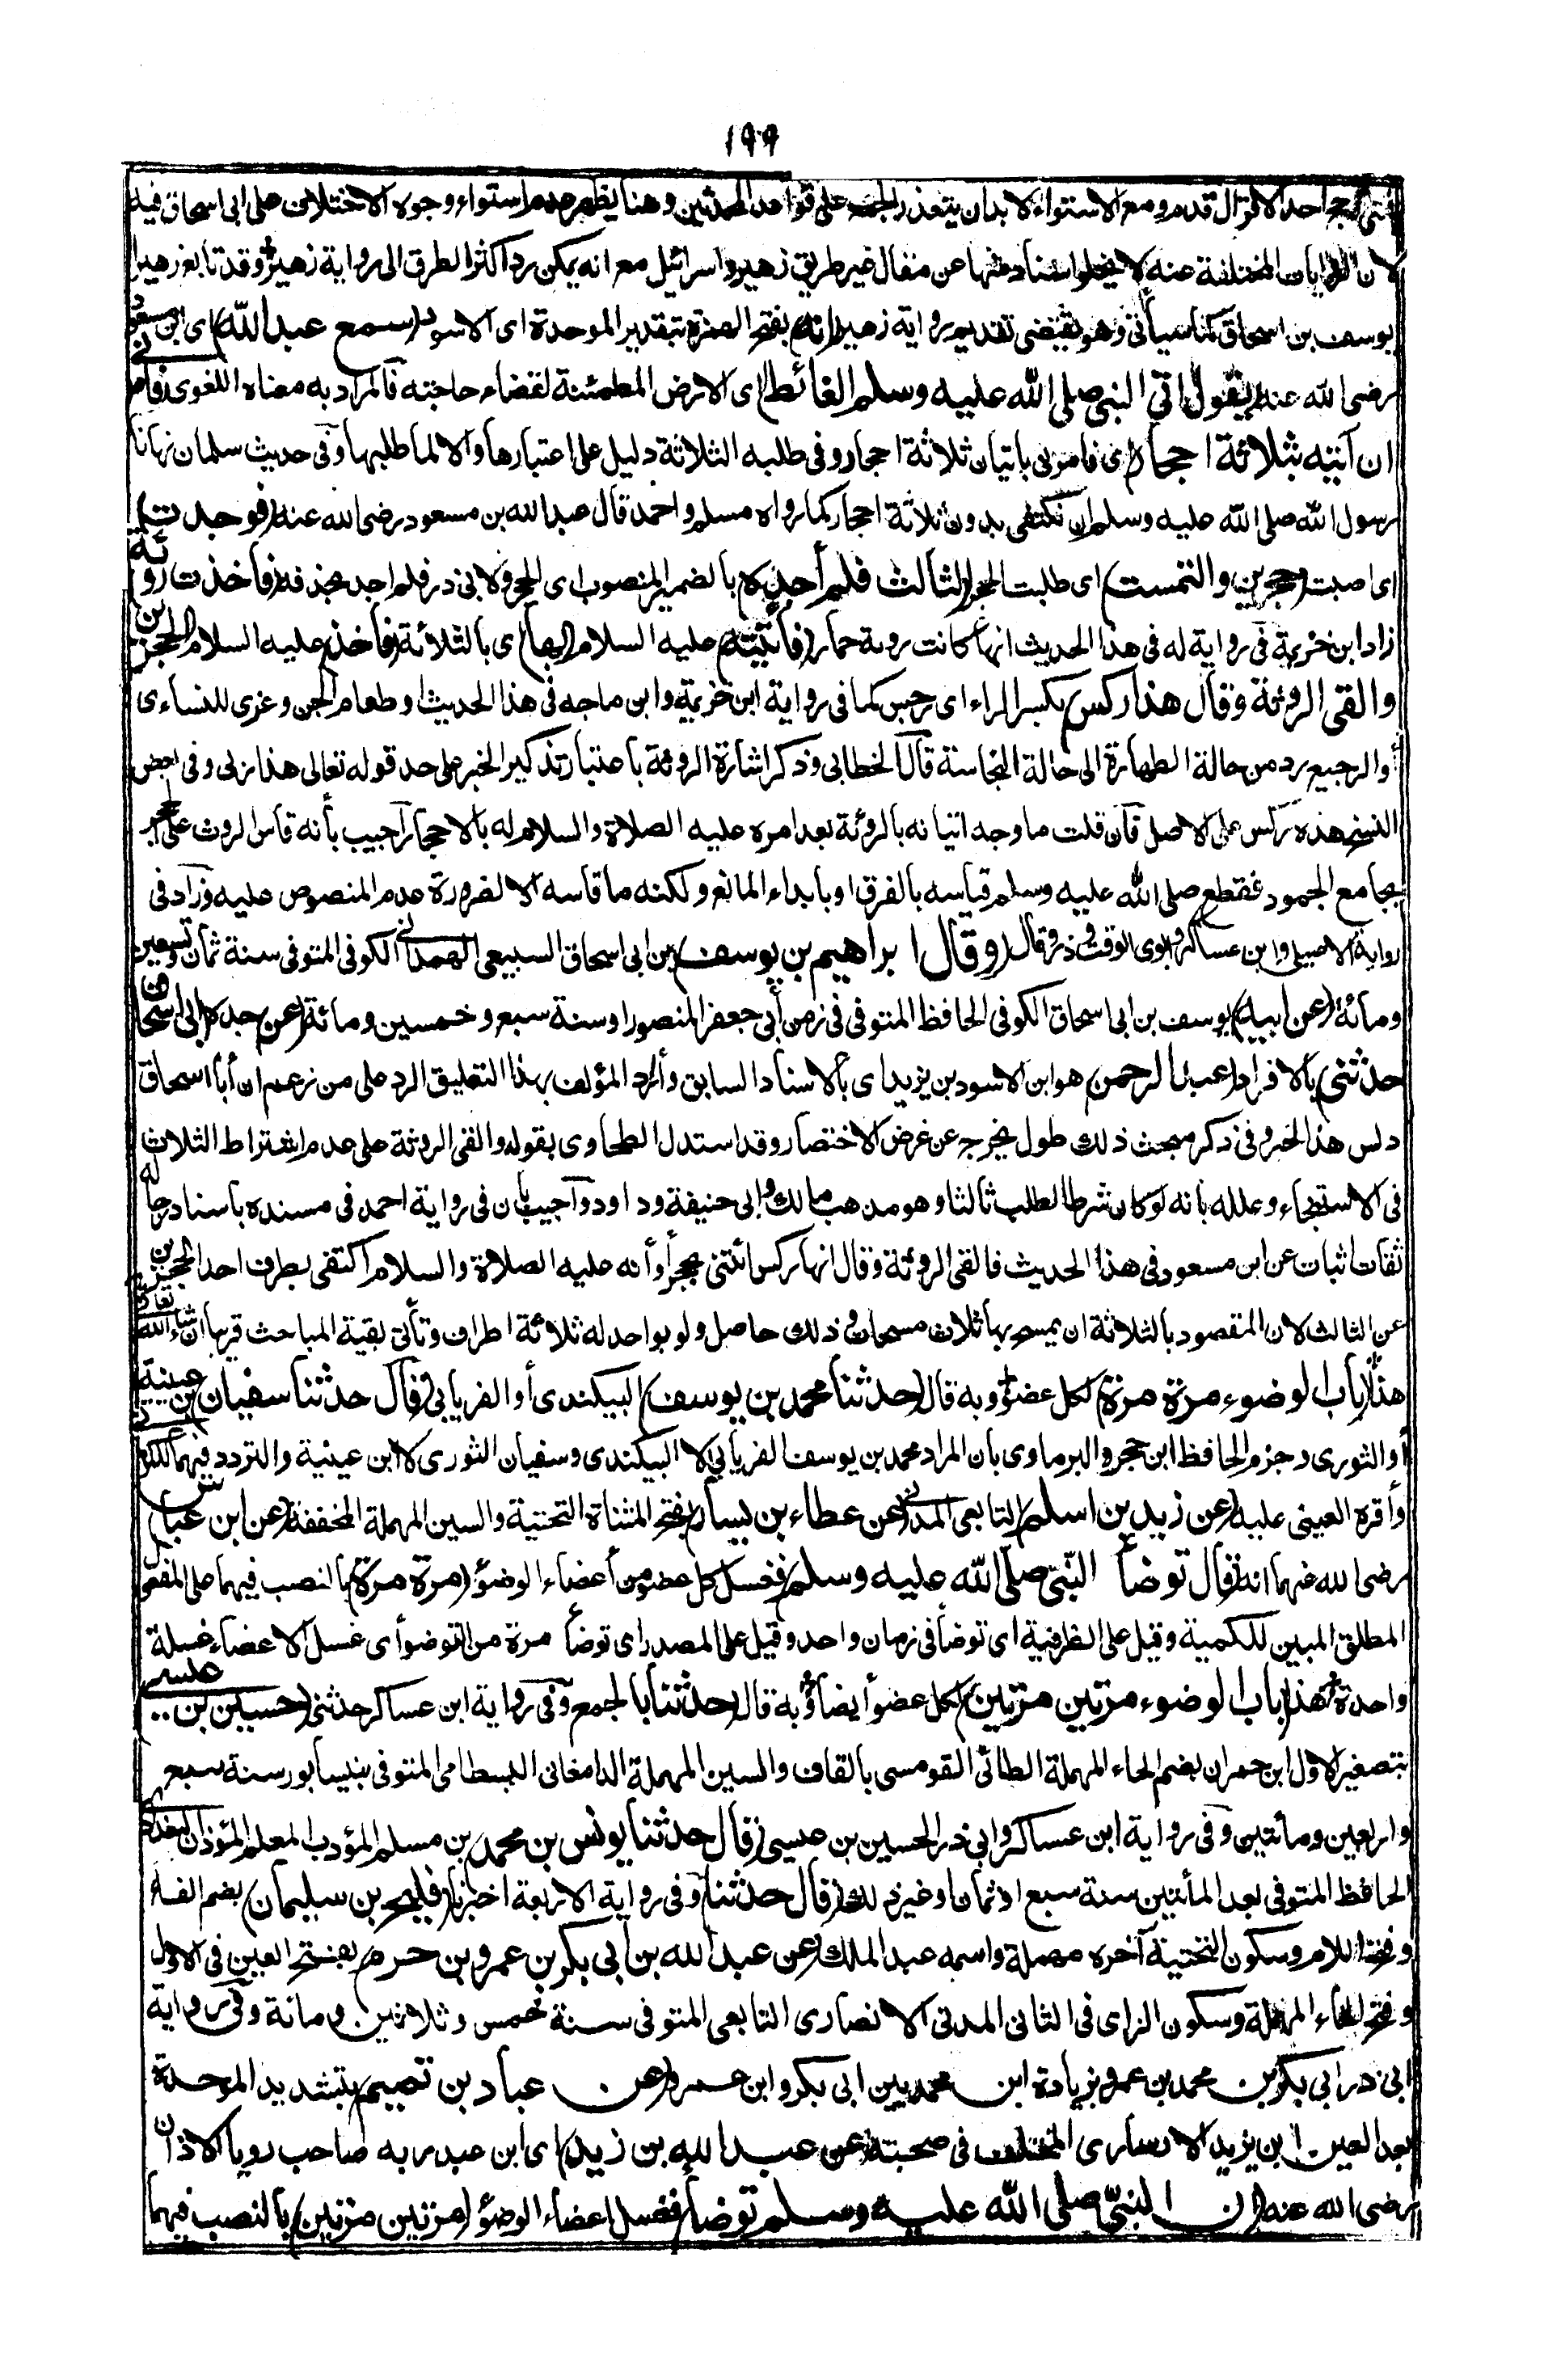 ١٩٩
متى رجح احد الاقوال قدم ومع الاستواء لا بد ان يتعذر الجمع على قواعد المحدثين وهنا يظهر عدم استواء وجوه الاختلاف على ابى اسحاق فيه
لان الروايات المختلفة عنه لا يخلو اسناد منها عن مقال غير طريق زهير واسرائيل مع انه يمكن رد اكثر الطرق الى رواية زهير وقد تابع زهيرا
يوسف بن اسحاق كما سيأتى وهو يقتضى تقديم رواية زهير (انه) بفتح الهمزة بتقدير الموحدة اى الاسود (سمع عبد الله) اى ابن مسعود
رضى الله عنه (يقول اتى النبى صلى الله عليه وسلم الغائط) اى الارض المطمئنة لقضاء حاجته فالمراد به معناه اللغوى (فامرنى
ان آتيه بثلاثة احجار) اى فامرنى باتيان ثلاثة احجار وفى طلبه الثلاثة دليل على اعتبارها والا لما طلبها وفى حديث سلمان نهانا
رسول الله صلى الله عليه وسلم ان نكتفى بدون ثلاثة احجار كما رواه مسلم واحمد قال عبد الله بن مسعود رضى الله عنه (فوجدت)
اى اصبت (حجرين والتمست) اى طلبت الحجر (الثالث فلم أجده) بالضمير المنصوب اى الحجر ولابى ذر فلم اجد بحذفه (فأخذت روثة)
زاد ابن خزيمة فى رواية له فى هذا الحديث انها كانت روثة حمار (فأتيته) عليه السلام (بها) اى بالثلاثة (فأخذ) عليه السلام (الحجرين
والقى الروثة وقال هذا ركس) بكسر الراء اى رجس كما فى رواية ابن خزيمة وابن ماجه فى هذا الحديث او طعام الجن وعزى للنساءى
أو الرجيع رد من حالة الطهارة الى حالة النجاسة قال الخطابى وذكر اشارة الروثة باعتبار تذكير الخبر على حد قوله تعالى هذا ربى وفى بعض
النسخ هذه ركس على الاصل فان قلت ما وجه اتيانه بالروثة بعد امره عليه الصلاة والسلام له بالاحجار اجيب بأنه قاس الروث على الحجر
بجامع الجمود فقطع صلى الله عليه وسلم قياسه بالفرق او بابداء المانع ولكنه ما قاسه الا لضرورة عدم المنصوص عليه وزاد فى
رواية الاصيلى وابن عساكر وابوى الوقت وذر وقال (وقال ابراهيم بن يوسف) بن ابى اسحاق السبيعى الهمدانى الكوفى المتوفى سنة ثمان وتسعين
ومائة (عن ابيه) يوسف بن ابى اسحاق الكوفى الحافظ المتوفى فى زمن أبى جعفر المنصور او سنة سبع وخمسين ومائة (عن) جده (ابى اسحاق
حدثنى) بالافراد (عبد الرحمن) هو ابن الاسود بن يزيد اى بالاسناد السابق وأراد المؤلف بهذا التعليق الرد على من زعم ان أبا اسحاق
دلس هذا الخبر وفى ذكر مبحث ذلك طول يخرجه عن غرض الاختصار وقد استدل الطحاوى بقوله والقى الروثة على عدم اشتراط الثلاث
فى الاستنجاء وعلله بانه لو كان شرطا لطلب ثالثا وهو مذهب مالك وابى حنيفة وداود واجيب بان فى رواية احمد فى مسنده باسناد رجاله
ثقات اثبات عن ابن مسعود فى هذا الحديث فالقى الروثة وقال انها ركس ائتنى بحجر أو أنه عليه الصلاة والسلام اكتفى بطرف احد الحجرين
عن الثالث لان المقصود بالثلاثة ان يمسح بها ثلاث مسحات وذلك حاصل ولو بواحد له ثلاثة اطراف وتأتى بقية المباحث قريبا ان شاء الله تعالى
هذا (باب الوضوء مرة مرة) لكل عضو وبه قال (حدثنا محمد بن يوسف) البيكندى أو الفريابى (قال حدثنا سفيان) بن عيينة
أو الثورى وجزم الحافظ ابن حجر والبرماوى بان المراد محمد بن يوسف الفريابى لا البيكندى وسفيان الثورى لا ابن عيينة والتردد فيهما للكرمانى
وأقره العينى عليه (عن زيد بن اسلم) التابعى المدنى (عن عطاء بن يسار) بفتح المثناة التحتية والسين المهملة المخففة (عن ابن عباس)
رضى الله عنهما انه (قال توضأ النبى صلى الله عليه وسلم) فغسل كل عضو من أعضاء الوضؤ (مرة مرة) بالنصب فيهما على المفعول
المطلق المبين للكمية وقيل على الظرفية اى توضأ فى زمان واحد وقيل على المصدر اى توضأ مرة من التوضوأى غسل الاعضاء غسلة
واحدة هذا (باب الوضوء مرتين مرتين) لكل عضو أيضا وبه قال (حدثنا) بالجمع وفى رواية ابن عساكر حدثنى (حسين بن عيسى)
بتصغير الاول ابن حمران بضم الحاء المهملة الطائى القومسى بالقاف والسين المهملة الدامغانى البسطامى المتوفى بنيسابور سنة سبع
واربعين ومائتين وفى رواية ابن عساكر وابى ذر الحسين بن عيسى (قال حدثنا يونس بن محمد) بن مسلم المؤدب المعلم المؤذن البغدادى
الحافظ المتوفى بعد المأتين سنة سبع او ثمان او غير ذلك (قال حدثنا) وفى رواية الاربعة اخبرنا (فليح بن سليمان) بضم الفاء
وفتح اللام وسكون التحتية آخره مهملة واسمه عبد الملك (عن عبد الله بن أبى بكر بن عمرو بن حزم) بفتح العين فى الاول
وفتح الحاء المهملة وسكون الزاى فى الثانى المدنى الانصارى التابعى المتوفى سنة خمس وثلاثين ومائة وفى رواية
ابى ذر ابى بكر بن محمد بن عمرو بزيادة ابن محمد بين ابى بكر وابن عمرو (عن عباد بن تميم) بتشديد الموحدة
بعد العين ابن يزيد الانصارى المختلف فى صحبته (عن عبد الله بن زيد) اى ابن عبد ربه صاحب رويا الاذان
رضى الله عنه (ان النبى صلى الله عليه وسلم توضأ) فغسل اعضاء الوضؤ (مرتين مرتين) بالنصب فيهما